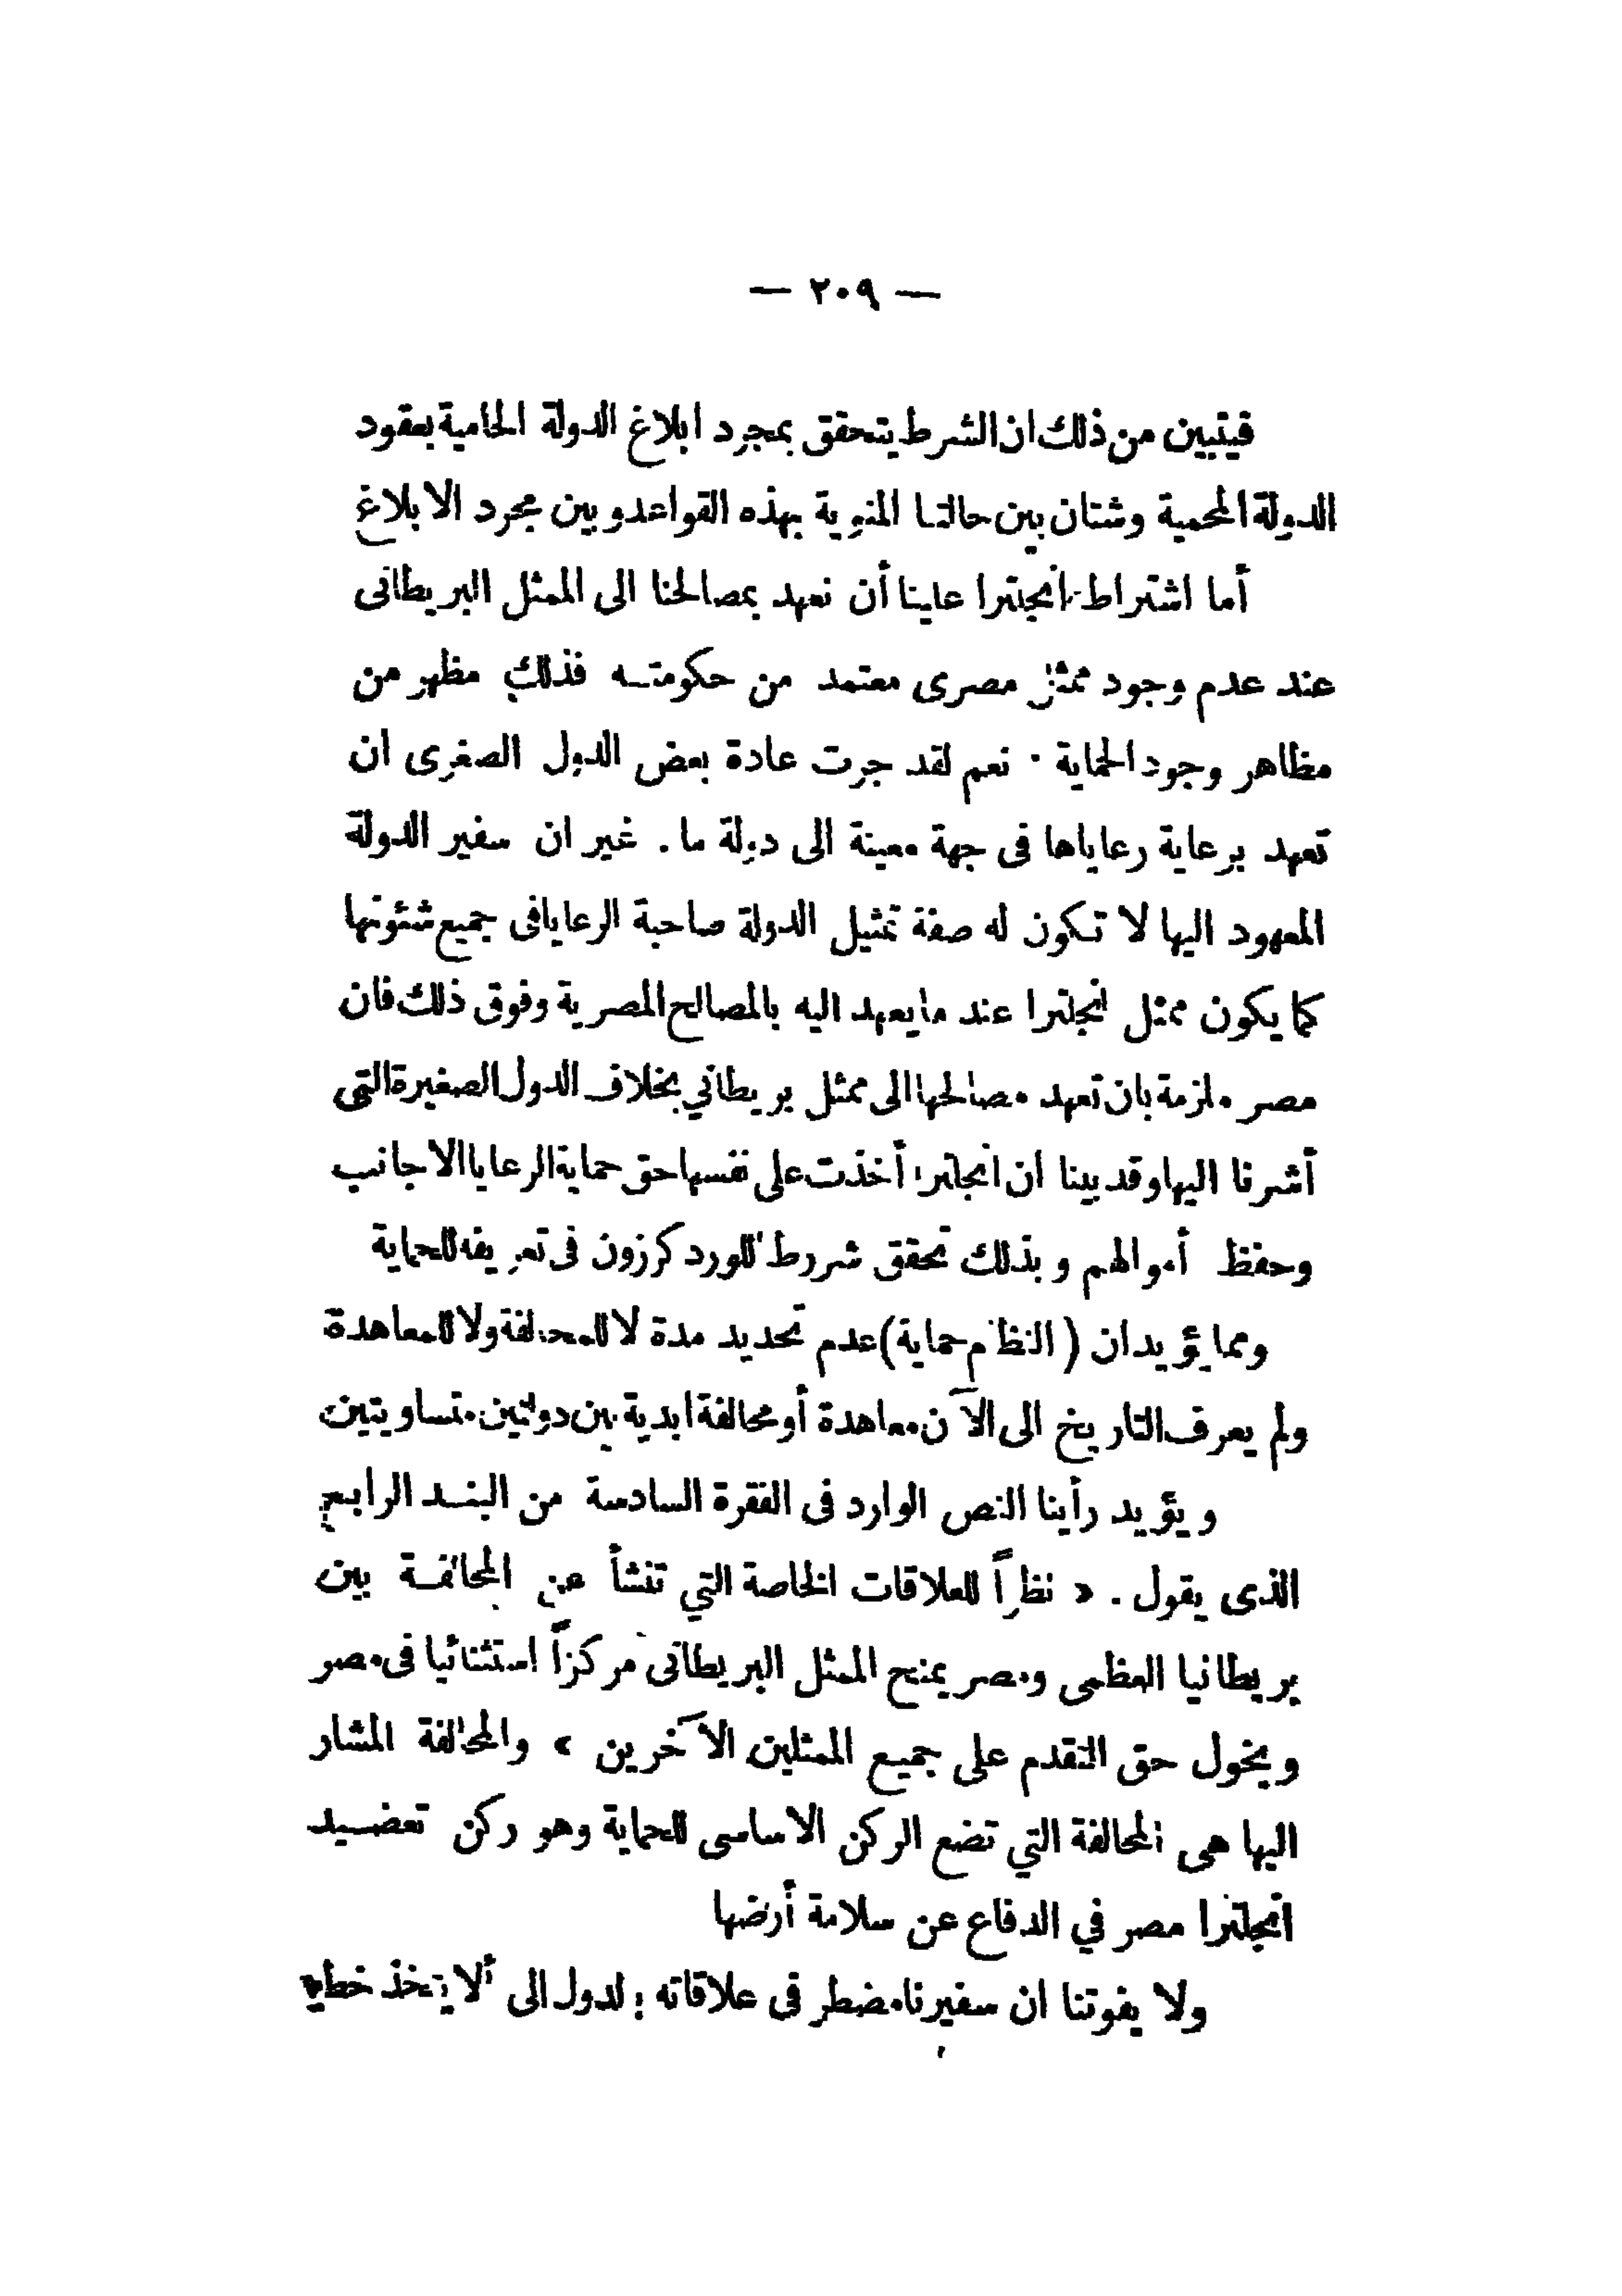 — ٢٠٩ —
فيتبين من ذلك ان الشرط يتحقق بمجرد ابلاغ الدولة الحامية بعقود
الدولة المحمية وشتان بين حالتنا المنوية بهذه القواعد وبين مجرد الابلاغ
أما اشتراط انجلترا علينا أن نعهد بمصالحنا الى الممثل البريطانى
عند عدم وجود ممثل مصرى معتمد من حكومته فذلك مظهر من
مظاهر وجود الحماية . نعم لقد جرت عادة بعض الدول الصغرى ان
تعهد برعاية رعاياها فى جهة معينة الى دولة ما . غير ان سفير الدولة
المعهود اليها لا تكون له صفة تمثيل الدولة صاحبة الرعايا فى جميع شئونها
كما يكون ممثل انجلترا عند ما يعهد اليه بالمصالح المصرية وفوق ذلك فان
مصر ملزمة بان تعهد مصالحها الى ممثل بريطاني بخلاف الدول الصغيرة التى
أشرنا اليها وقد بينا ان انجلترا أخذت على نفسها حق حماية الرعايا الاجانب
وحفظ أموالهم وبذلك تحقق شروط اللورد كرزون فى تعريفه للحماية
ومما يؤيد ان ( النظام حماية ) عدم تحديد مدة لا للمحالفة ولا للمعاهدة
ولم يعرف التاريخ الى الآن معاهدة أو محالفة ابدية بين دولتين متساويتين
ويؤيد رأينا النص الوارد فى الفقرة السادسة من البند الرابع
الذى يقول . « نظراً للعلاقات الخاصة التي تنشأ عن المحالفة بين
بريطانيا العظمى ومصر يمنح الممثل البريطانى مركزاً استثنائيا فى مصر
ويخول حق التقدم على جميع الممثلين الآخرين » والمحالفة المشار
اليها هى المحالفة التي تضع الركن الاساسى للحماية وهو ركن تعضيد
انجلترا مصر في الدفاع عن سلامة أرضها
ولا يفوتنا ان سفيرنا مضطر فى علاقاته بالدول الى ألا يتخذ خطة